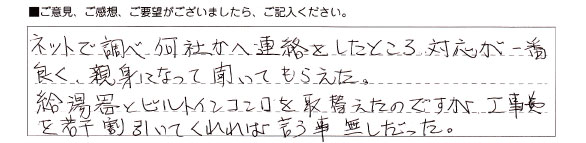 ■ご意見、ご感想、ご要望がございましたら、ご記入ください。
ネットで調べ何社かへ連絡をしたところ対応が一番
良く、親身になって聞いてもらえた。
給湯器とビルトインコンロを取替えたのですが工事費
を若干割引いてくれれば言う事無しだった。